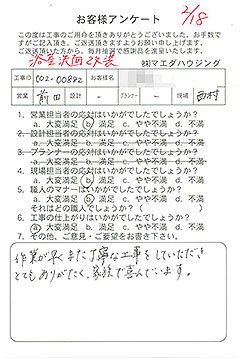 お客様アンケート
2/18
この度は工事のご用命を頂きありがとうございました、お手数で
すがご記入頂き、ご返送頂きますようお願い申し上げます。
ご返送頂いた方から、毎月抽選で感謝品を進呈いたします。
浴室洗面改装
㈱マエダハウジング
工事ID 002-00892 お客様名
営業 前田 設計 - プランナー - 現場 西村
1. 営業担当者の応対はいかがでしたでしょうか?
a. 大変満足 b. 満足 c. やや不満 d. 不満
2. 設計担当者の応対はいかがでしたでしょうか?
a. 大変満足 b. 満足 c. やや不満 d. 不満
3. プランナーの応対はいかがでしたでしょうか?
a. 大変満足 b. 満足 c. やや不満 d. 不満
4. 現場担当者の応対はいかがでしたでしょうか?
a. 大変満足 b. 満足 c. やや不満 d. 不満
5. 職人のマナーはいかがでしたでしょうか?
a. 大変満足 b. 満足 c. やや不満 d. 不満
それはどの職人でしょうか?( )
6. 工事の仕上がりはいかがでしたでしょうか?
a. 大変満足 b. 満足 c. やや不満 d. 不満
7. その他、ご意見・ご要望をお書き下さい。
作業が早く また丁寧な工事をしていただき
とてもありがたく、家族で喜んでいます。